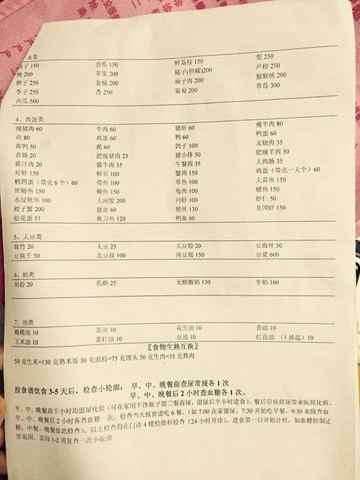 水类
柿子 150 香蕉 150 鲜荔枝 150 梨 250
桃 200 苹果 200 橘子(鲜橘)200 芦柑 250
橙子 250 金橘 200 柚子肉 200 猕猴桃 200
李子 250 杏 250 葡萄 200 草莓 300
西瓜 500
4、肉蛋类
瘦猪肉 60 牛肉 60 猪肝 60 瘦羊肉 80
鸡 80 鸡蛋 60 鸭 60 鸭蛋 60
酱鸭 50 鹅 60 鸽子 100 叉烧肉 35
香肠 20 肥瘦猪肉 25 猪小排 50 肥瘦羊肉 50
酱汁肉 20 酱牛肉 35 午餐肉 35 大肉肠 35
对虾 150 鲜贝 100 蟹肉 150 鸡蛋(带壳一大个)60
鹌鹑蛋(带壳 6 个)60 带鱼 100 草鱼 100 大黄鱼 150
黑鲢鱼 150 鲫鱼 150 兔肉 100 鳝鱼 150
水浸鱿鱼 100 大河蟹 200 河虾 100 虾仁 50
蛏子蟹 200 猪血 60 鳝丝 130 基围虾 150
松花蛋 51 秋刀鱼 120 鸭血 60
5、大豆类
腐竹 20 大豆 25 大豆粉 20 豆腐丝 50
豆腐干 50 北豆腐 100 南豆腐 150 豆浆 600
6、奶类
奶粉 20 乳酪 25 无糖酸奶 130 牛奶 160
7、油类
橄榄油 10 茶油 10 花生油 10 香油 10
玉米油 10 菜籽油 10 豆油 10 红花油 (1 汤匙)10
〖食物生熟互换〗
50 克生米=130 克熟米饭 50 克面粉=75 克馒头 50 克生肉=35 克熟肉
按食谱饮食 3-5 天后,检查小轮廓: 早、中、晚餐前查尿常规各 1 次
早、中、晚餐后 2 小时查血糖各 1 次,